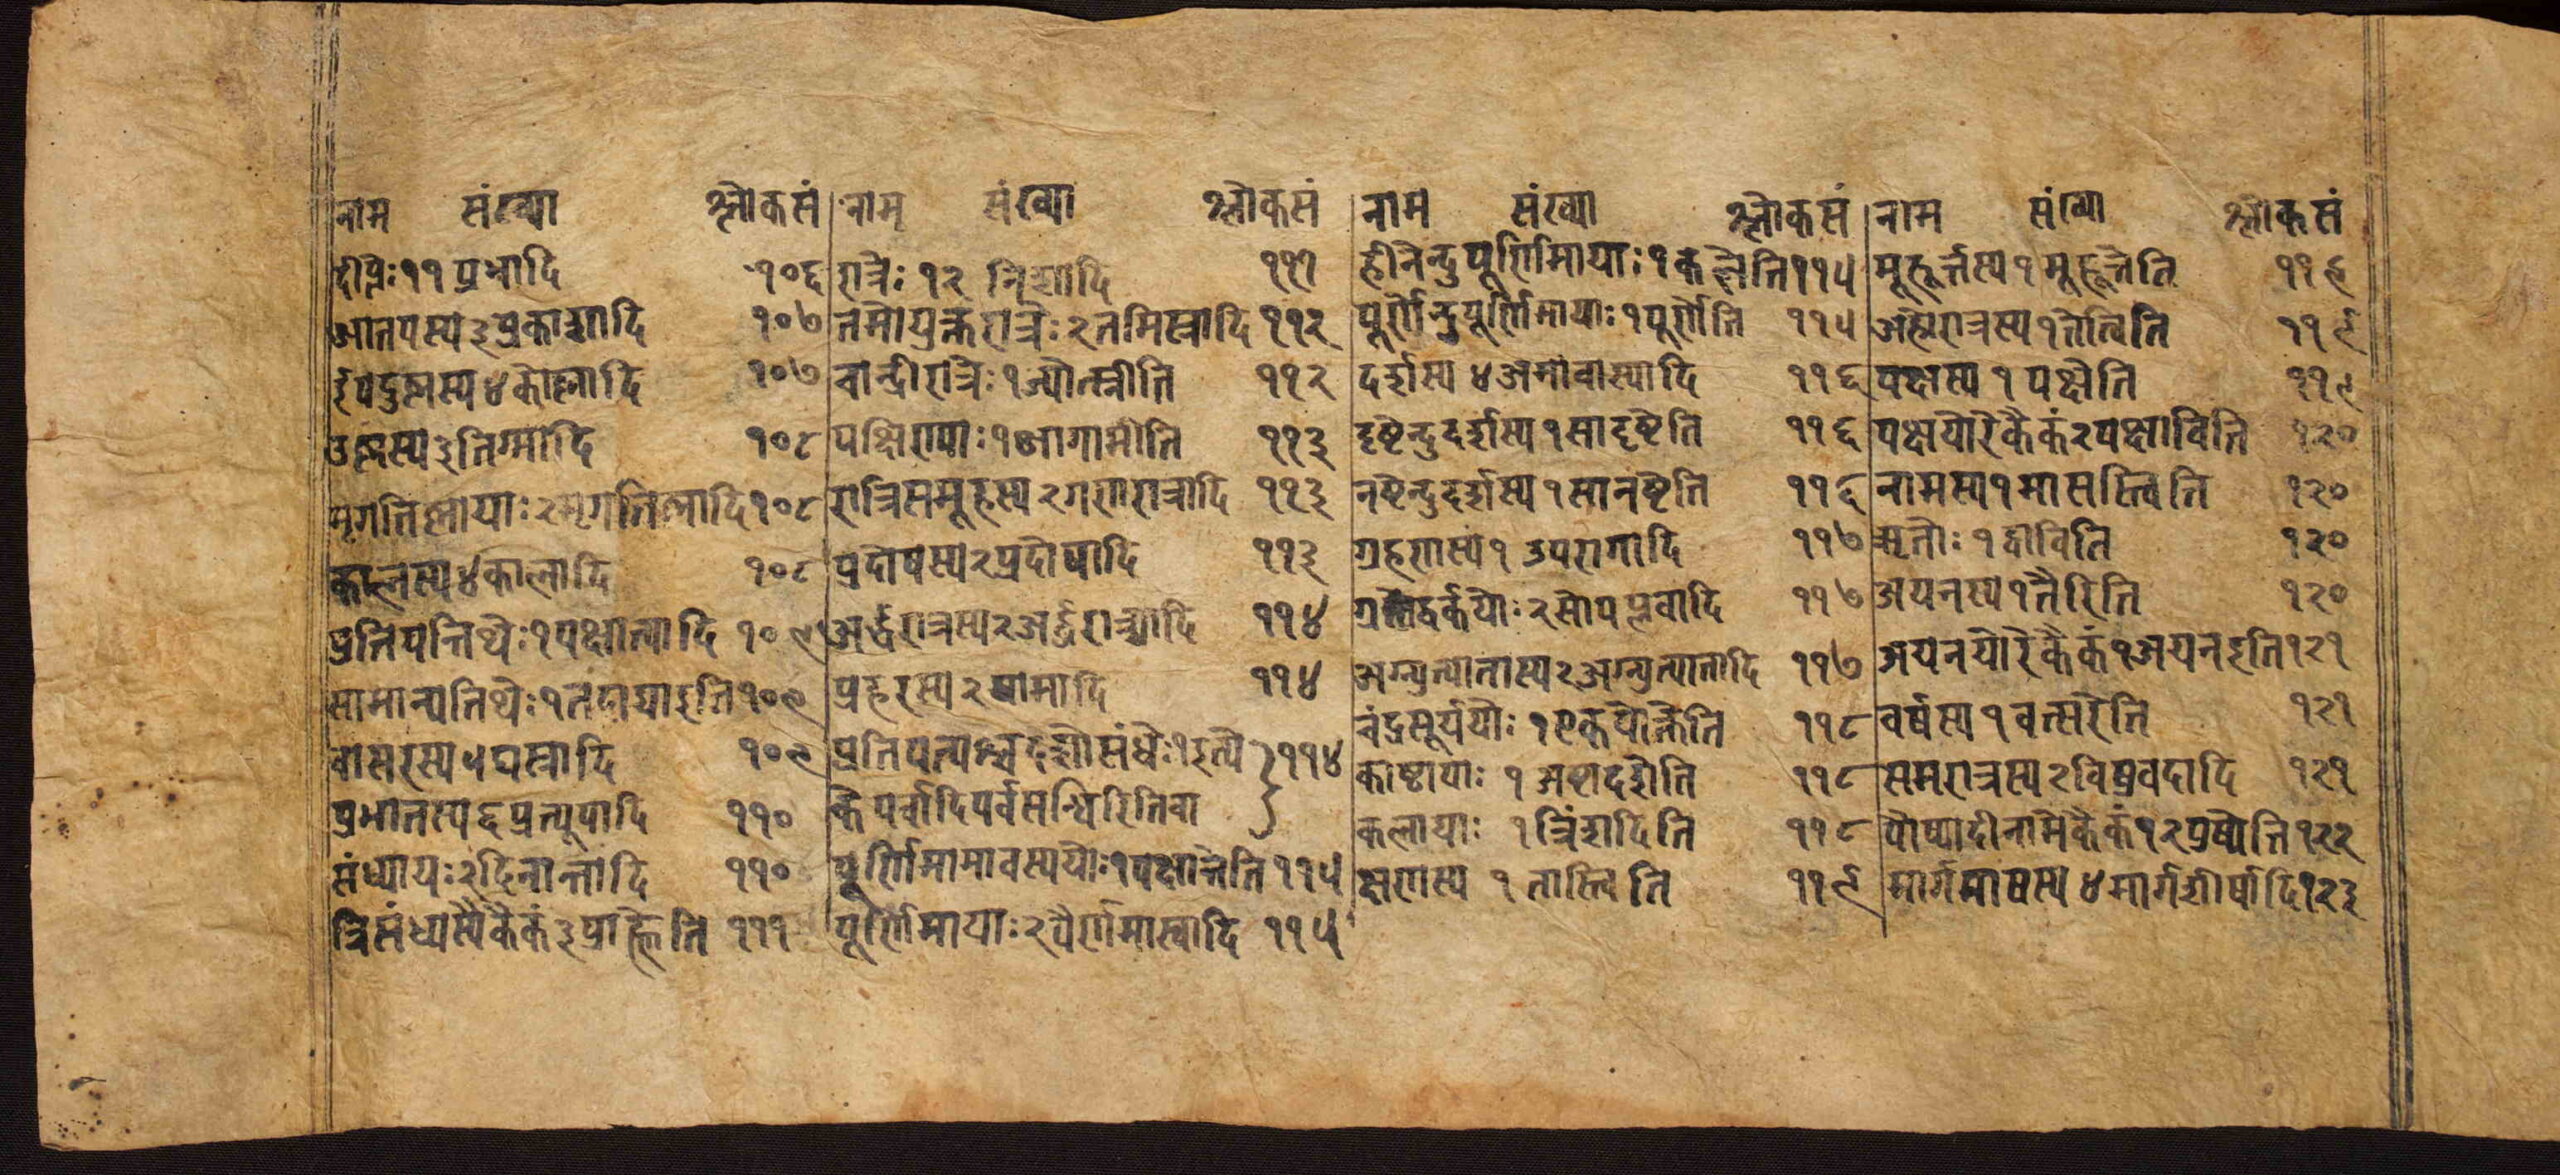 नाम संख्या श्लोकसं
दीप्तेः ११ प्रभादि १०६
आतपस्य ३ प्रकाशादि १०७
ईषदुष्णस्य ४ कोष्णादि १०७
उष्णस्य ३ तिग्मादि १०८
मृगतिष्णायाः २ मृगतिष्णादि १०८
कालस्य ४ कालादि १०८
प्रतिपत्तिथेः १ पक्षात्यादि १०९
सामान्यतिथेः १ तदाद्याइति १०९
वासरस्य ५ घस्रादि १०९
प्रभातस्य ६ प्रत्यूषादि ११०
संध्यायः २ दिनान्तादि ११०
त्रिसंध्यस्यैकैकं ३ प्राह्णेति १११
नाम संख्या श्लोकसं
रात्रेः १२ निशादि १११
तमोयुक्तरात्रेः २ तमिस्रादि ११२
चान्द्रीरात्रेः १ ज्यौत्स्नीति ११२
पक्षिराण्याः १ आगामीति ११३
रात्रिसमूहस्य २ गणरात्रादि ११३
प्रदोषस्य २ प्रदोषादि ११३
अर्द्धरात्रस्य २ अर्द्धरात्र्यादि ११४
प्रहरस्य २ यामादि ११४
प्रतिपत्पञ्चदश्योसंधेः १ इत्यै } ११४
के पर्वादिपर्वसन्धिरितिवा
पूर्णिमामावस्ययोः १ पक्षान्तेति ११५
पूर्णिमायाः २ पौर्णमास्यादि ११५
नाम संख्या श्लोकसं
हीनेन्दुपूर्णिमायाः १ कलेति ११५
पूर्णेन्दुपूर्णिमायाः १ पूर्णेति ११५
दर्शस्य ४ अमावास्यादि ११६
दृष्टेन्दुदर्शस्य १ सादृष्टेति ११६
नष्टेन्दुदर्शस्य १ सानष्टेति ११६
ग्रहणस्य १ उपरागादि ११७
ग्रस्तेद्वर्कयोः २ सोपप्लवादि ११७
अग्न्युत्पातास्य २ अग्न्युत्पातादि ११७
चंद्रसूर्ययोः १ एकयोक्तेति ११८
काष्टायाः १ अष्टादशेति ११८
कलायाः १ त्रिंशदिति ११८
क्षणस्य १ तास्त्विति ११९
नाम संख्या श्लोकसं
मुहूर्त्तस्य १ मुहूर्त्तेति ११९
अहोरात्रस्य १ तेत्विति ११९
पक्षस्य १ पक्षेति ११९
पक्षयोरेकैकं २ पक्षाविति १२०
नामस्य १ मासस्त्विति १२०
ऋतोः १ द्वाविति १२०
अयनस्य १ तैरिति १२०
अयनयोरेकैकं १ अयनइति १२१
वर्षस्य १ वत्सरेति १२१
समरात्रस्य २ विषुवदादि १२१
पौष्यादीनामेकैकं १२ पुष्येति १२२
मार्गमाषस्य ४ मार्गशीर्षादि १२३